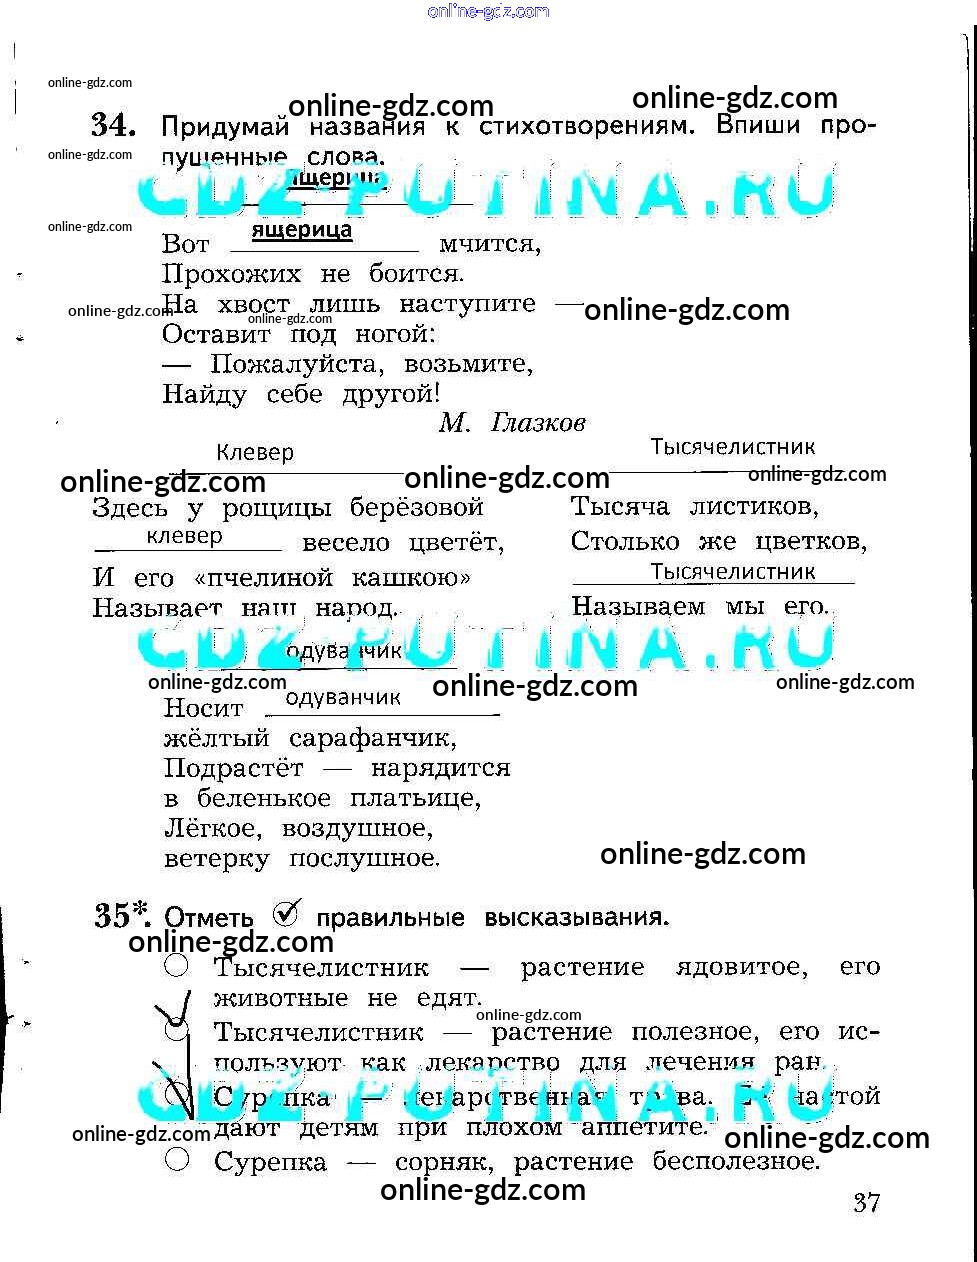 online-gdz.com
online-gdz.com
online-gdz.com
online-gdz.com
34. Придумай названия к стихотворениям. Впиши про-
online-gdz.com
пущенные слова.
ящерица
GDZ-PUTINA.RU
online-gdz.com
Вот ящерица мчится,
Прохожих не боится.
На хвост лишь наступите —
online-gdz.com
online-gdz.com
online-gdz.com
Оставит под ногой:
— Пожалуйста, возьмите,
Найду себе другой!
М. Глазков
Клевер
online-gdz.com
online-gdz.com
Здесь у рощицы берёзовой
клевер весело цветёт,
И его «пчелиной кашкою»
Называет наш народ.
Тысячелистник
online-gdz.com
Тысяча листиков,
Столько же цветков,
Тысячелистник
Называем мы его.
GDZ-PUTINA.RU
одуванчик
online-gdz.com
online-gdz.com
online-gdz.com
Носит одуванчик
жёлтый сарафанчик,
Подрастёт — нарядится
в беленькое платьице,
Лёгкое, воздушное,
ветерку послушное.
online-gdz.com
35*. Отметь правильные высказывания.
online-gdz.com
Тысячелистник — растение ядовитое, его
животные не едят.
online-gdz.com
Тысячелистник — растение полезное, его ис-
пользуют как лекарство для лечения ран.
GDZ-PUTINA.RU
Сурепка — лекарственная трава. Её настой
дают детям при плохом аппетите.
online-gdz.com
online-gdz.com
Сурепка — сорняк, растение бесполезное.
online-gdz.com
37